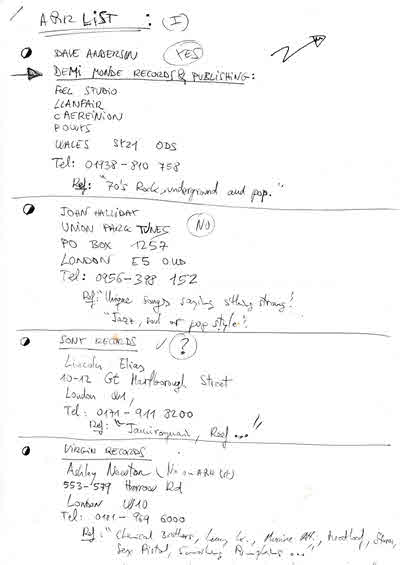 A&R LIST : (I)
DAVE ANDERSON YES
DEMI MONDE RECORDS & PUBLISHING:
FEL STUDIO
LLANFAIR
CAEREINION
POWYS
WALES SY21 ODS
Tel: 01938-810 758
Ref: "70's Rock, underground and pop."
JOHN HALLIDAY NO
UNION PARK TUNES
PO BOX 1257
LONDON E5 OUD
Tel: 0956-398 152
Ref: "Unique songs saying sthing strong!
"Jazz, soul or pop style!
SONY RECORDS ✓ ?
Lincoln Elias
10-12 GT Marlborough Street
London W1,
Tel: 0171-911 8200
Ref: "Jamiroquai, Reef ..."
VIRGIN RECORDS
Ashley Newton
553-579 Harrow Rd
London W10
Tel: 0181-964 6000
Ref: "Chemical Brothers, Lenny Kr., Massive Att., Meatloaf, Stones,
Sex Pistol, Smashing Pumpkins ..."